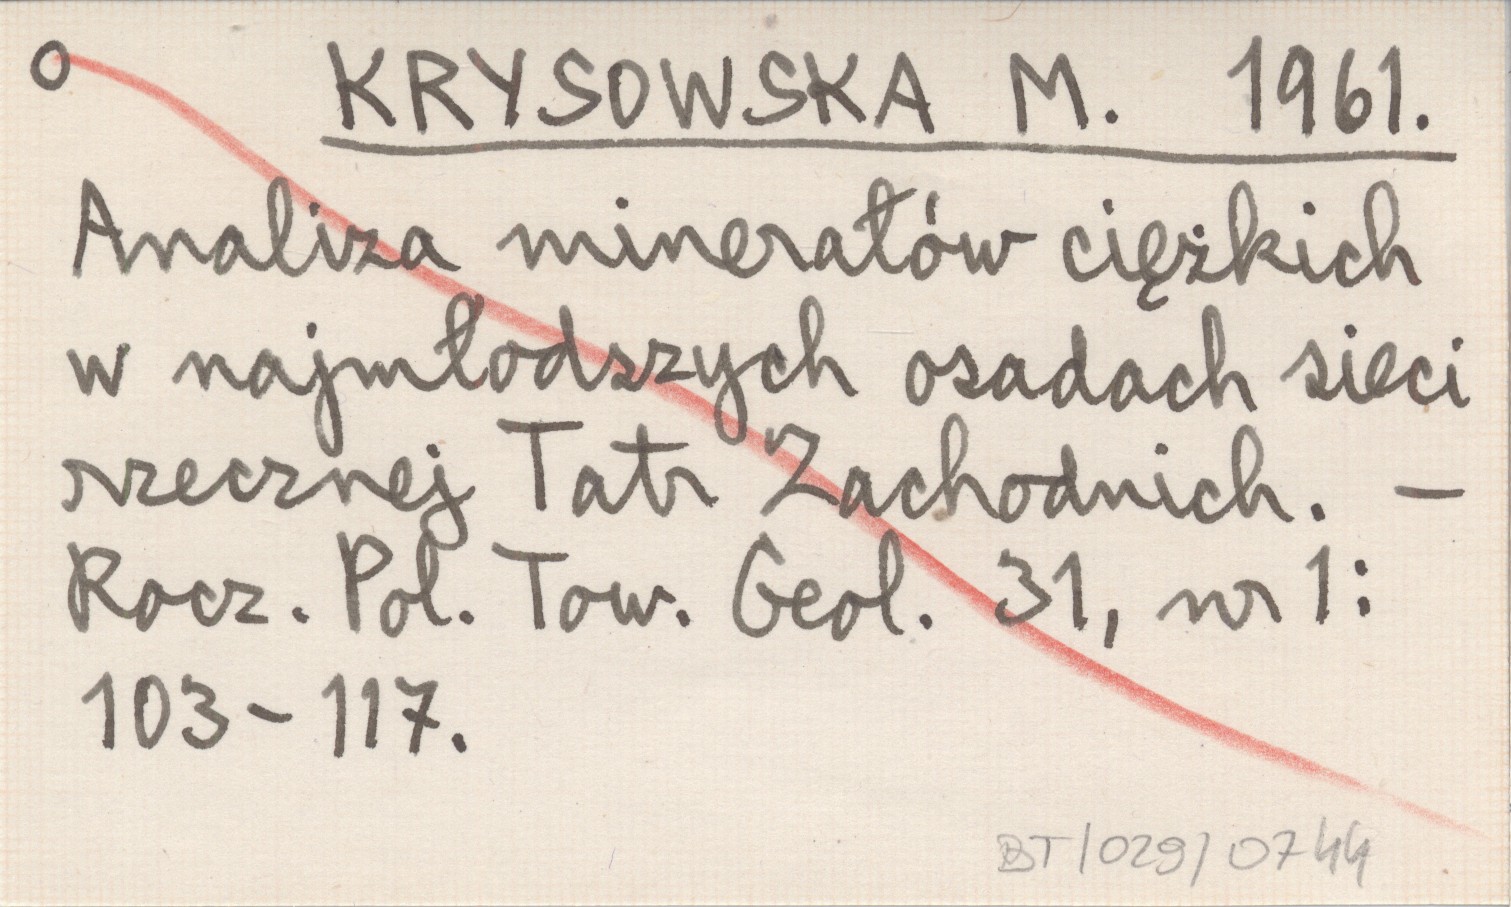 KRYSOWSKA M. 1961.
Analiza minerałów ciężkich
w najmłodszych osadach sieci
rzecznej Tatr Zachodnich. —
Rocz. Pol. Tow. Geol. 31, nr 1:
103-117.
BT/029/0744